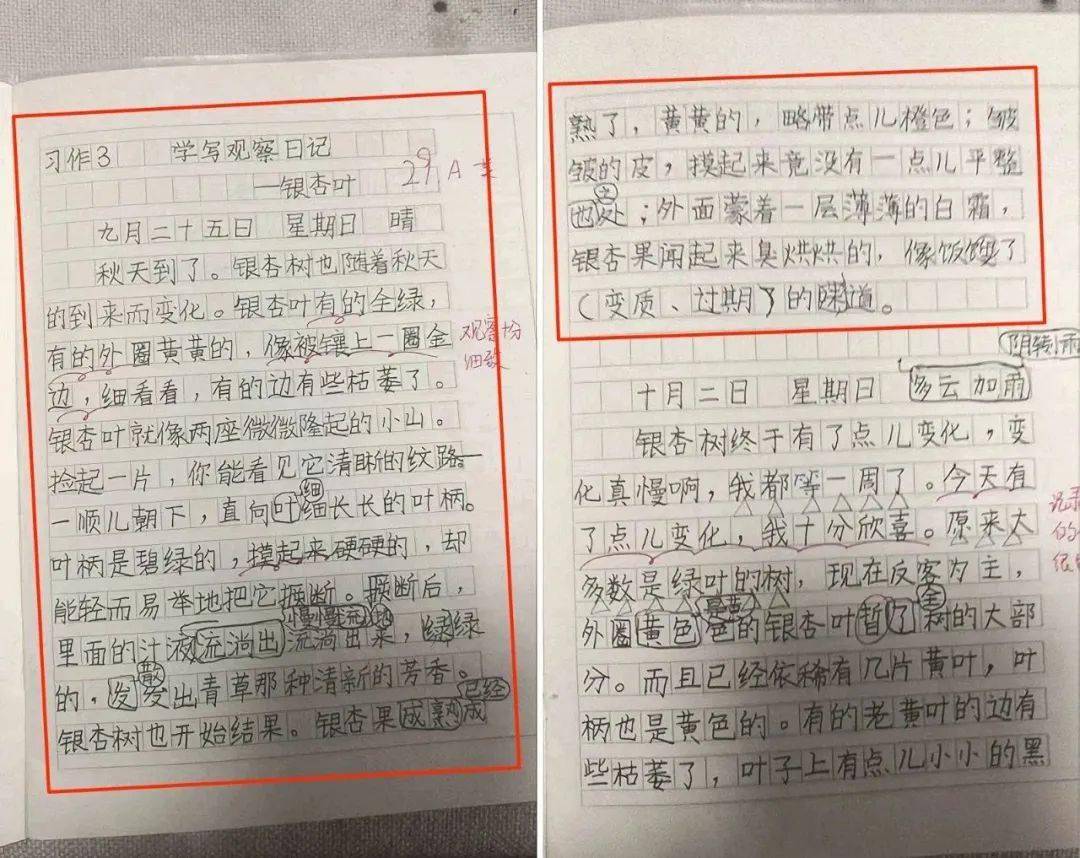 习作3 学写观察日记
—银杏叶
29 A
九月二十五日 星期日 晴
秋天到了。银杏树也随着秋天
的到来而变化。银杏叶有的全绿，
有的外圈黄黄的，像被镶上一圈金
观察十分
细致
边，细看看，有的边有些枯萎了。
银杏叶就像两座微微隆起的小山。
捡起一片，你能看见它清晰的纹路
细
一顺儿朝下，直向叶细长长的叶柄。
叶柄是碧绿的，摸起来硬硬的，却
能轻而易举地把它掰断。掰断后，
慢慢流
里面的汁液流淌出流淌出来，绿绿
散
的，发发出青草那种清新的芳香。
已经
银杏树也开始结果。银杏果成熟成
熟了，黄黄的，略带点儿橙色；皱
皱的皮，摸起来竟没有一点儿平整
之
处；外面蒙着一层薄薄的白霜，
银杏果闻起来臭烘烘的，像饭馊了
（变质、过期）的味道。
阴转雨
十月二日 星期日 多云加雨
银杏树终于有了点儿变化，变
化真慢啊，我都等一周了。今天有
了点儿变化，我十分欣喜。原来大
多数是绿叶的树，现在反客为主，
外圈黄色色的银杏叶暂了树的大部
分。而且已经依稀有几片黄叶，叶
柄也是黄色的。有的老黄叶的边有
些枯萎了，叶子上有点儿小小的黑